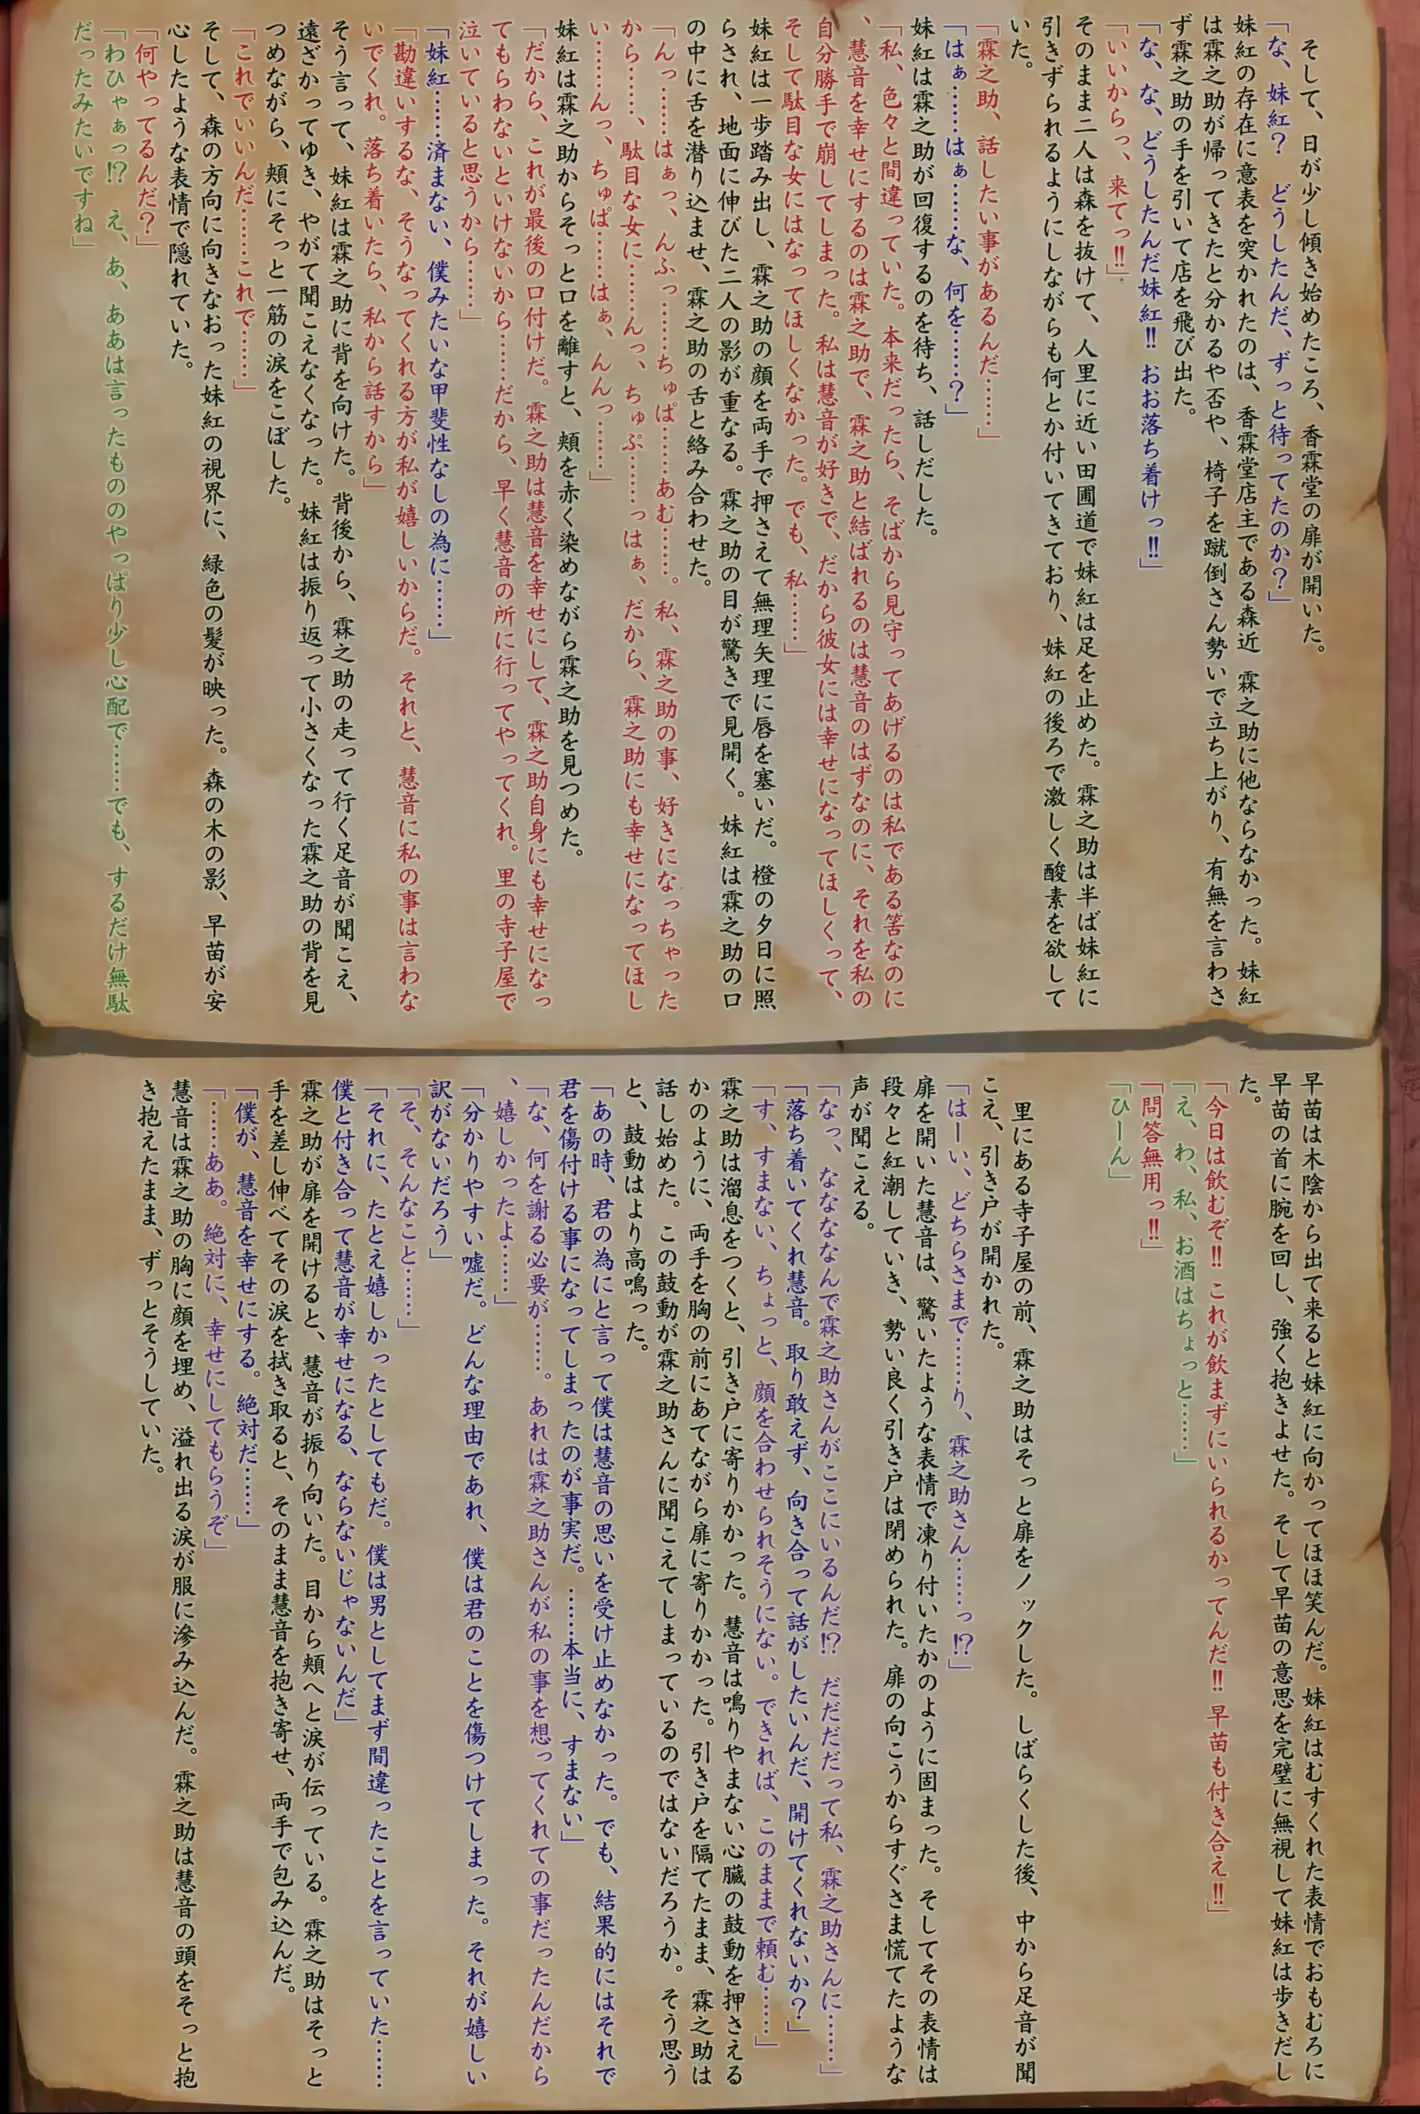 そして、日が少し傾き始めたころ、香霖堂の扉が開いた。
「な、妹紅？　どうしたんだ、ずっと待ってたのか？」
妹紅の存在に意表を突かれたのは、香霖堂店主である森近　霖之助に他ならなかった。妹紅
は霖之助が帰ってきたと分かるや否や、椅子を蹴倒さん勢いで立ち上がり、有無を言わさ
ず霖之助の手を引いて店を飛び出た。
「な、な、どうしたんだ妹紅!! おお落ち着けっ!!」
「いいからっ、来てっ!!」
そのまま二人は森を抜けて、人里に近い田圃道で妹紅は足を止めた。霖之助は半ば妹紅に
引きずられるようにしながらも何とか付いてきており、妹紅の後ろで激しく酸素を欲して
いた。
「霖之助、話したい事があるんだ……」
「はぁ……はぁ……な、何を……？」
妹紅は霖之助が回復するのを待ち、話しだした。
「私、色々と間違っていた。本来だったら、そばから見守ってあげるのは私である筈なのに
、慧音を幸せにするのは霖之助で、霖之助と結ばれるのは慧音のはずなのに、それを私の
自分勝手で崩してしまった。私は慧音が好きで、だから彼女には幸せになってほしくって、
そして駄目な女にはなってほしくなかった。でも、私……」
妹紅は一歩踏み出し、霖之助の顔を両手で押さえて無理矢理に唇を塞いだ。橙の夕日に照
らされ、地面に伸びた二人の影が重なる。霖之助の目が驚きで見開く。妹紅は霖之助の口
の中に舌を潜り込ませ、霖之助の舌と絡み合わせた。
「んっ……はぁっ、んふっ……ちゅぱ……あむ……。私、霖之助の事、好きになっちゃった
から……、駄目な女に……んっ、ちゅぷ……っはぁ、だから、霖之助にも幸せになってほし
い……んっ、ちゅぱ……はぁ、んんっ……」
妹紅は霖之助からそっと口を離すと、頬を赤く染めながら霖之助を見つめた。
「だから、これが最後の口付けだ。霖之助は慧音を幸せにして、霖之助自身にも幸せになっ
てもらわないといけないから……だから、早く慧音の所に行ってやってくれ。里の寺子屋で
泣いていると思うから……」
「妹紅……済まない、僕みたいな甲斐性なしの為に……」
「勘違いするな、そうなってくれる方が私が嬉しいからだ。それと、慧音に私の事は言わな
いでくれ。落ち着いたら、私から話すから」
そう言って、妹紅は霖之助に背を向けた。背後から、霖之助の走って行く足音が聞こえ、
遠ざかってゆき、やがて聞こえなくなった。妹紅は振り返って小さくなった霖之助の背を見
つめながら、頬にそっと一筋の涙をこぼした。
「これでいいんだ……これで……」
そして、森の方向に向きなおった妹紅の視界に、緑色の髪が映った。森の木の影、早苗が安
心したような表情で隠れていた。
「何やってるんだ？」
「わひゃぁっ!?　え、あ、ああは言ったもののやっぱり少し心配で……でも、するだけ無駄
だったみたいですね」
早苗は木陰から出て来ると妹紅に向かってほほ笑んだ。妹紅はむすくれた表情でおもむろに
早苗の首に腕を回し、強く抱きよせた。そして早苗の意思を完璧に無視して妹紅は歩きだし
た。
「今日は飲むぞ!! これが飲まずにいられるかってんだ!! 早苗も付き合え!!」
「え、わ、私、お酒はちょっと……」
「問答無用っ!!」
「ひーん」
　里にある寺子屋の前、霖之助はそっと扉をノックした。しばらくした後、中から足音が聞
こえ、引き戸が開かれた。
「はーい、どちらさまで……り、霖之助さん……っ!?」
扉を開いた慧音は、驚いたような表情で凍り付いたかのように固まった。そしてその表情は
段々と紅潮していき、勢い良く引き戸は閉められた。扉の向こうからすぐさま慌てたような
声が聞こえる。
「なっ、なななななんで霖之助さんがここにいるんだ!?　だだだだって私、霖之助さんに……」
「落ち着いてくれ慧音。取り敢えず、向き合って話がしたいんだ、開けてくれないか？」
「す、すまない、ちょっと、顔を合わせられそうにない。できれば、このままで頼む……」
霖之助は溜息をつくと、引き戸に寄りかかった。慧音は鳴りやまない心臓の鼓動を押さえる
かのように、両手を胸の前にあてながら扉に寄りかかった。引き戸を隔てたまま、霖之助は
話し始めた。この鼓動が霖之助さんに聞こえてしまっているのではないだろうか。そう思う
と、鼓動はより高鳴った。
「あの時、君の為にと言って僕は慧音の思いを受け止めなかった。でも、結果的にはそれで
君を傷付ける事になってしまったのが事実だ。……本当に、すまない」
「な、何を謝る必要が……。あれは霖之助さんが私の事を想ってくれての事だったんだから
、嬉しかったよ……」
「分かりやすい嘘だ。どんな理由であれ、僕は君のことを傷つけてしまった。それが嬉しい
訳がないだろう」
「そ、そんなこと……」
「それに、たとえ嬉しかったとしてもだ。僕は男としてまず間違ったことを言っていた……
僕と付き合って慧音が幸せになる、ならないじゃないんだ」
霖之助が扉を開けると、慧音が振り向いた。目から頬へと涙が伝っている。霖之助はそっと
手を差し伸べてその涙を拭き取ると、そのまま慧音を抱き寄せ、両手で包み込んだ。
「僕が、慧音を幸せにする。絶対だ……」
「……ああ。絶対に、幸せにしてもらうぞ」
慧音は霖之助の胸に顔を埋め、溢れ出る涙が服に滲み込んだ。霖之助は慧音の頭をそっと抱
き抱えたまま、ずっとそうしていた。